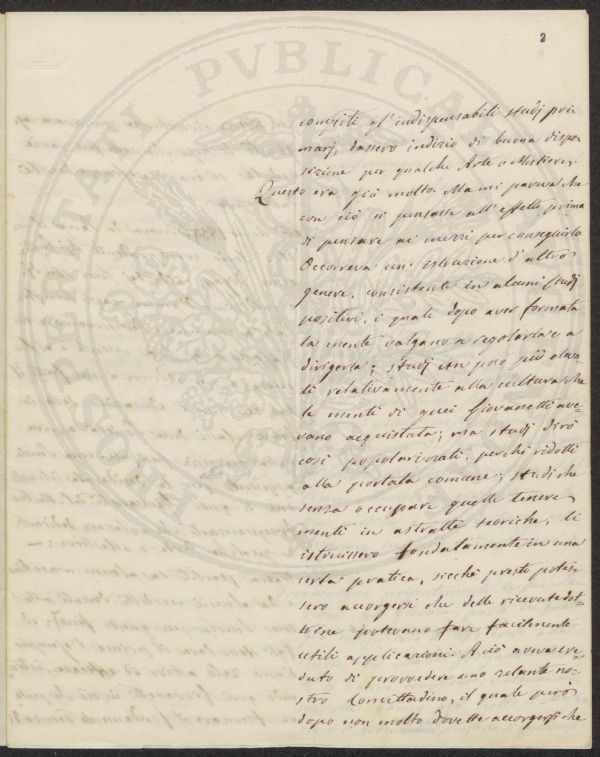 2
compiti gl'indispensabili studj pri=
marj, dassero indizio di buona dispo=
sizione per qualche Arte o Mestiere.
Questo era già molto. Ma mi pareva che
con ciò si pensasse all'effetto prima
di pensare ai mezzi per conseguirlo.
Occorreva un'istruzione d'altro
genere, consistente in alcuni studj
positivi, i quali dopo aver formata
la mente valgano a regolarla e a
dirigerla; studj un poco più eleva=
ti relativamente alla cultura che
le menti di quei Giovanetti ave=
vano acquistata; ma studj dirò
così popolarizzati, perchè ridotti
alla portata comune; studj che
senza occupare quelle tenere
menti in astratte teoriche, li
istruissero fondatamente in una
certa pratica, sicchè presto potes=
sero accorgersi che delle ricevute dot=
trine potevano fare facilmente
utili applicazioni. A ciò aveva cre=
duto di provvedere uno zelante no=
stro Concittadino, il quale però
dopo non molto dovette accorgersi che
PVBLICA